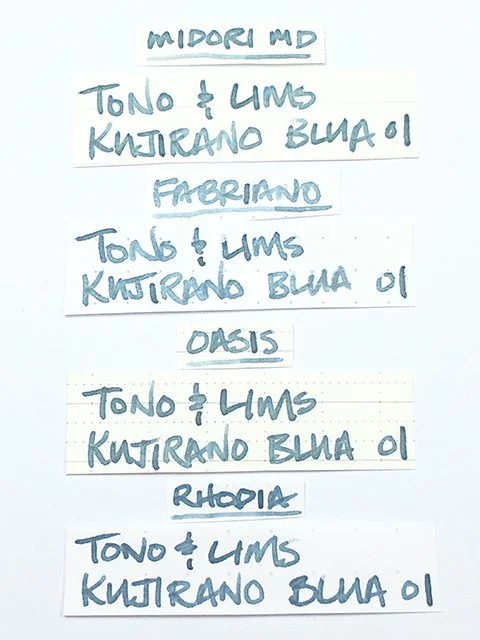 MIDORI MD
TONO & LIMS
KUJIRANO BLUA 01
FABRIANO
TONO & LIMS
KUJIRANO BLUA 01
OASIS
TONO & LIMS
KUJIRANO BLUA 01
RHODIA
TONO & LIMS
KUJIRANO BLUA 01